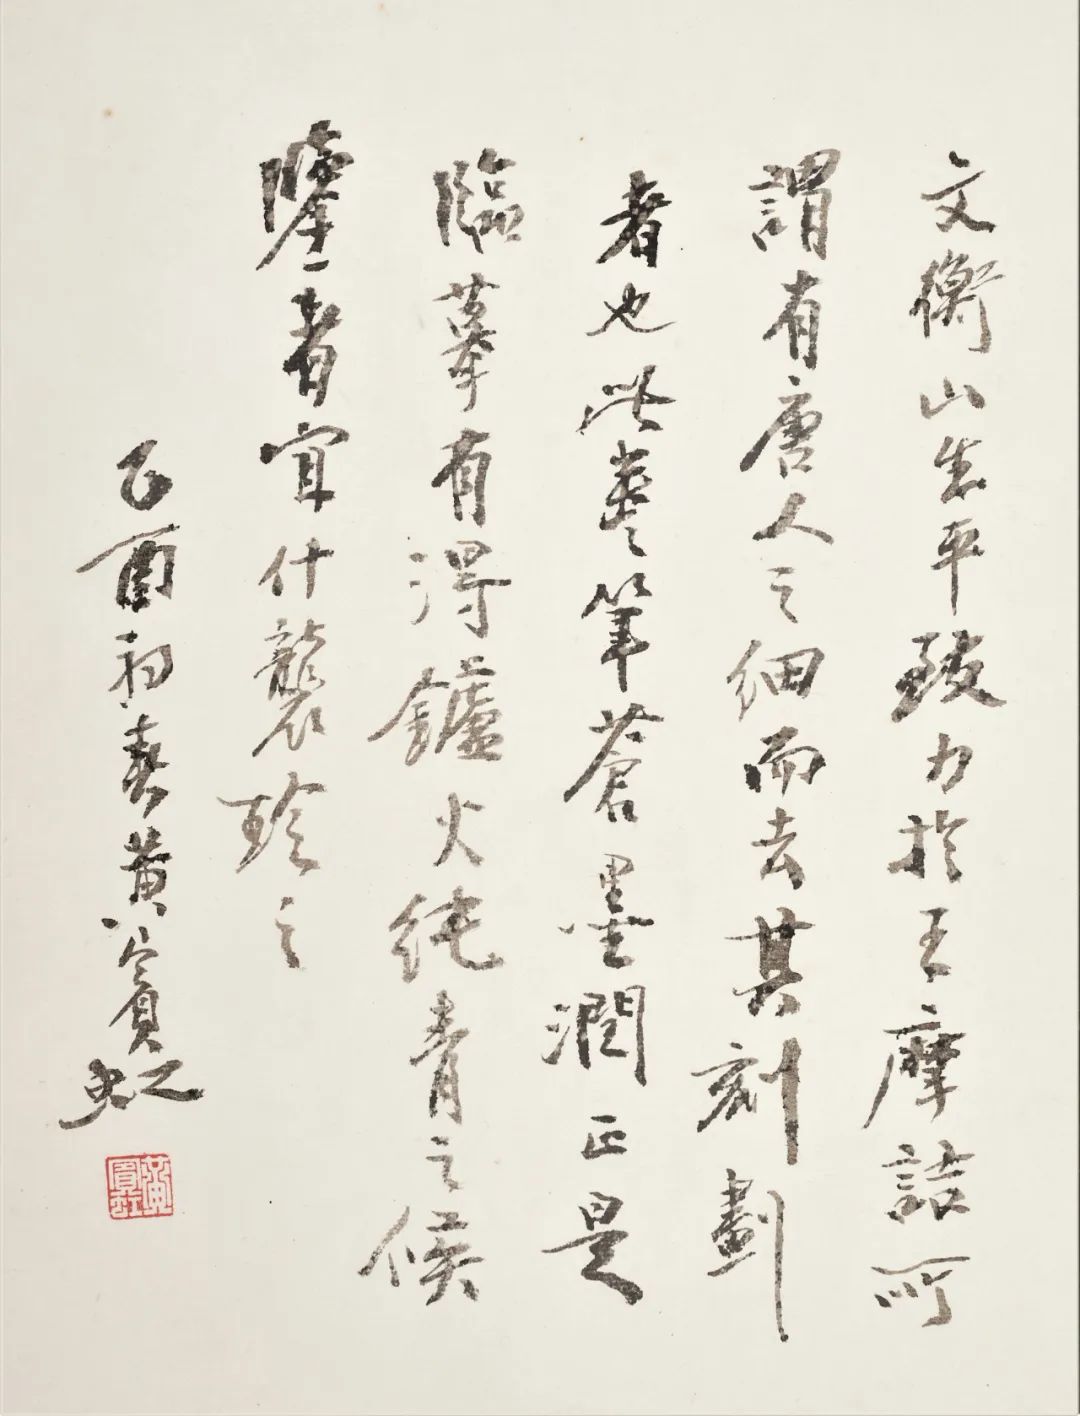 文衡山生平致力於王摩詰所
謂有唐人之細而去其刻劃
者也此卷筆蒼墨潤正是
臨摹有得鑪火純青之候
鑒者宜什襲珍之
乙酉初春黃賓虹
黃賓虹